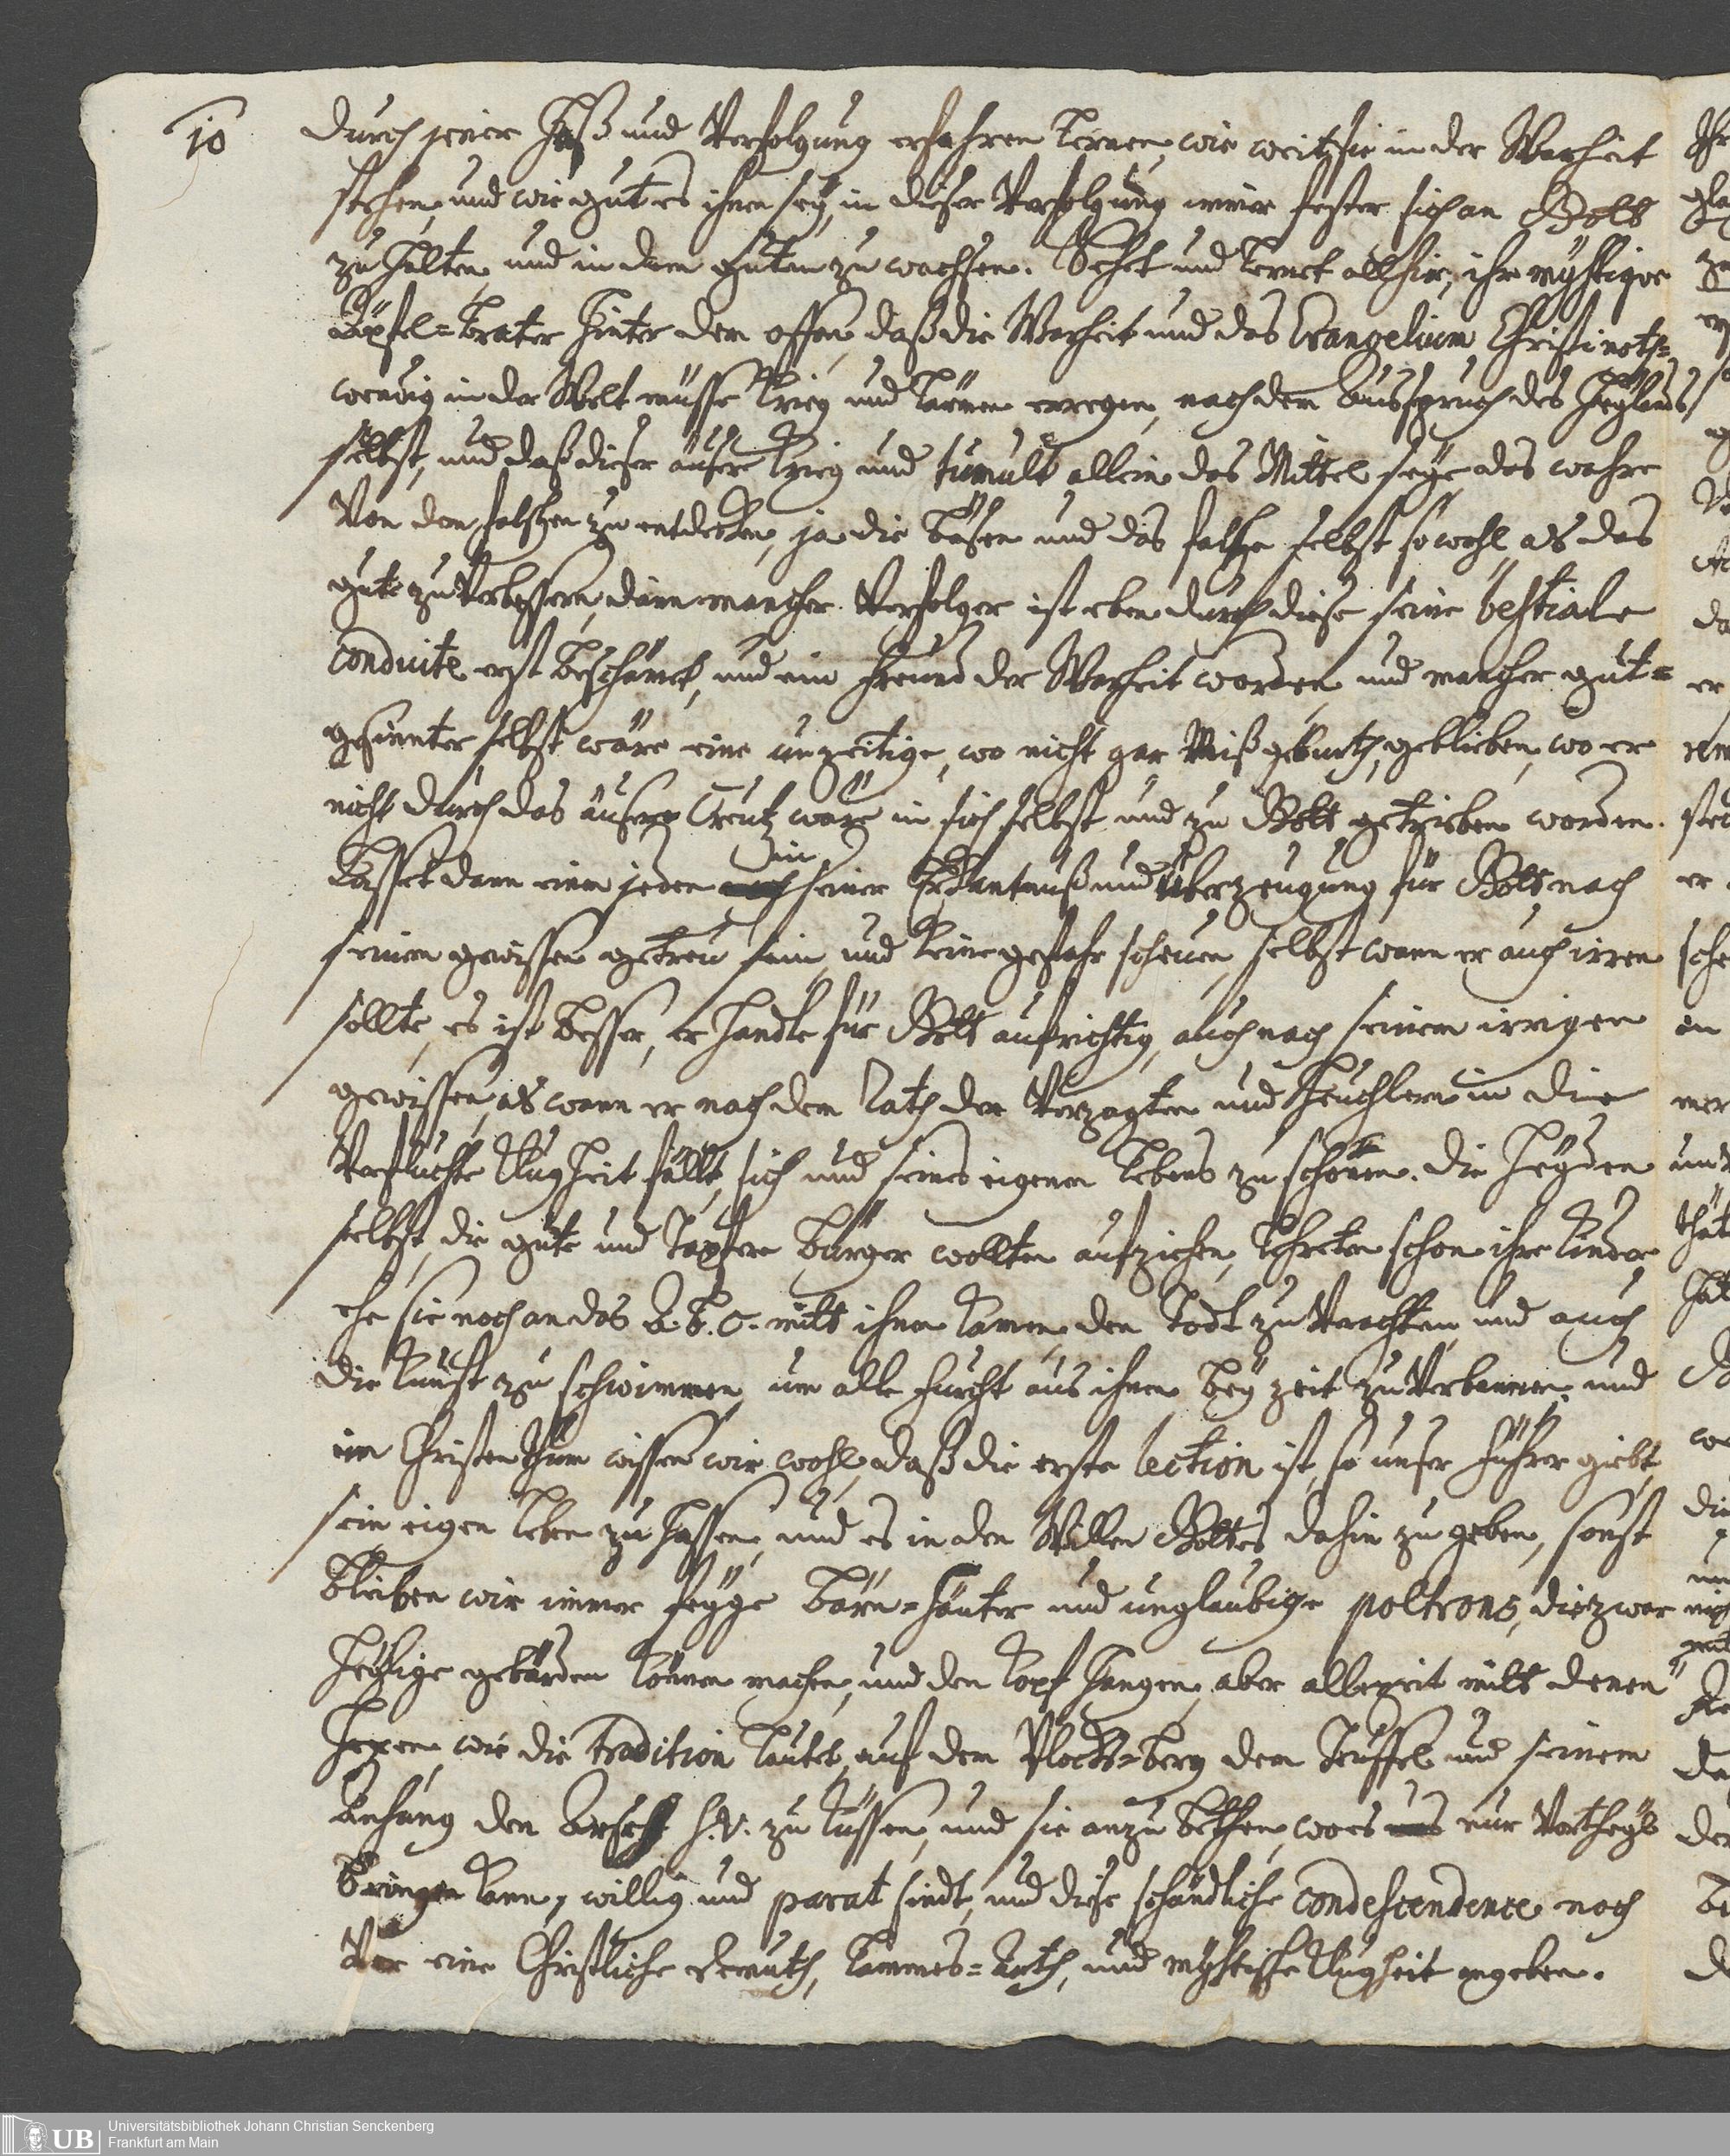 10
durch jener Haß und Verfolgung erfahren lernen, wie weit sie in der Warheit
stehen, und wie gut es ihnen sey, in dieser Verfolgung immer fester sich an Gott
zu halten, und in dem guten zu wachsen. Sehet und lernet allhier, ihr mystiqve
Äpfel=brater hinter dem offen, daß die Warheit und das Evangelium Christi noth=
wendig in der Welt müsse Krieg und Lärmen erregen, nach dem Ausspruch des Heylands
selbst, und daß dieser äusere Krieg und tumult allein das Mittel seye, das wahre
Von dem falschen zu entdecken, ja die bösen und das falsche selbst so wohl, als das
gute zu Verbessern, dann mancher Verfolger ist eben durch diese seine bestiale
conduite erst beschämet, und ein Freund der Warheit worden, und mancher gut=
gesinnter selbst wäre eine unzeitige, wo nicht gar Mißgeburth, geblieben, wo er
nicht durch das äusere Creutz wäre in sich selbst und zu Gott getrieben worden.
in
Lasset dann einen jeden seiner Erkantnuß und Überzeugung für Gott, nach
seinem gewissen getreu sein, und keine gefahr scheuen, selbst wann er auch irren
sollte, es ist besser, er handle für Gott aufrichtig, auch nach seinem irrigen
gewissen, als wann er nach dem Rath der Verzagten und Heuchlern in die
Verfluchte Klugheit fällt, sich und seines eigenen Lebens zu schonen. Die Heyden
selbst, die gute und Tapfere Bürger wollten aufziehen, lehreten schon ihre Kinder,
ehe sie noch an das A.B.C. mitt ihnen kamen, den Todt zu Verachten, und auch
die Kunst zu schwimmen, um alle furcht aus ihnen bey zeit zu Verbannen, und
im Christenthum wissen wir wohl, daß die erste lection ist, so unser Führer giebt,
sein eigen Leben zu hassen, und es in den Willen Gottes dahin zu geben, sonst
bleiben wir immer feyge Bärn=häuter und unglaubige poltrons, die zwar
heylige gebärden können machen, und den Kopf hangen, aber allezeit mitt denen
Hexen, wie die tradition lautet, auf dem Plocks=berg dem Teuffel und seinem
Anhang den Arsch s.v. zu küssen, und sie anzu betten, wo es nur Vortheyl
bringen kann, willig und parat sindt, und diese schändliche condescendence noch
Vor eine Christliche demuth, Lammes=Arth, und mystische Klugheit angeben.
Universitätsbibliothek Johann Christian Senckenberg
Frankfurt am Main
UB